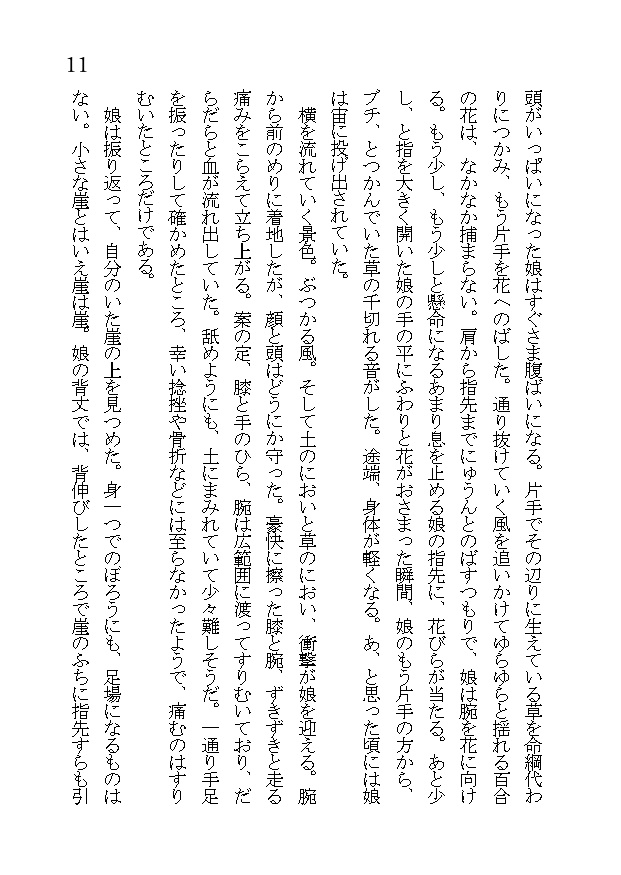 11
頭がいっぱいになった娘はすぐさま腹ばいになる。片手でその辺りに生えている草を命綱代わ
りにつかみ、もう片手を花へのばした。通り抜けていく風を追いかけてゆらゆらと揺れる百合
の花は、なかなか捕まらない。肩から指先までにゅうんとのばすつもりで、娘は腕を花に向け
る。もう少し、もう少しと懸命になるあまり息を止める娘の指先に、花びらが当たる。あと少
し、と指を大きく開いた娘の手の平にふわりと花がおさまった瞬間、娘のもう片手の方から、
ブチ、とつかんでいた草の千切れる音がした。途端、身体が軽くなる。あ、と思った頃には娘
は宙に投げ出されていた。
横を流れていく景色。ぶつかる風。そして土のにおいと草のにおい、衝撃が娘を迎える。腕
から前のめりに着地したが、顔と頭はどうにか守った。豪快に擦った膝と腕、ずきずきと走る
痛みをこらえて立ち上がる。案の定、膝と手のひら、腕は広範囲に渡ってすりむいており、だ
らだらと血が流れ出していた。舐めようにも、土にまみれていて少々難しそうだ。一通り手足
を振ったりして確かめたところ、幸い捻挫や骨折などには至らなかったようで、痛むのはすり
むいたところだけである。
娘は振り返って、自分のいた崖の上を見つめた。身一つでのぼろうにも、足場になるものは
ない。小さな崖とはいえ崖は崖。娘の背丈では、背伸びしたところで崖のふちに指先すらも引